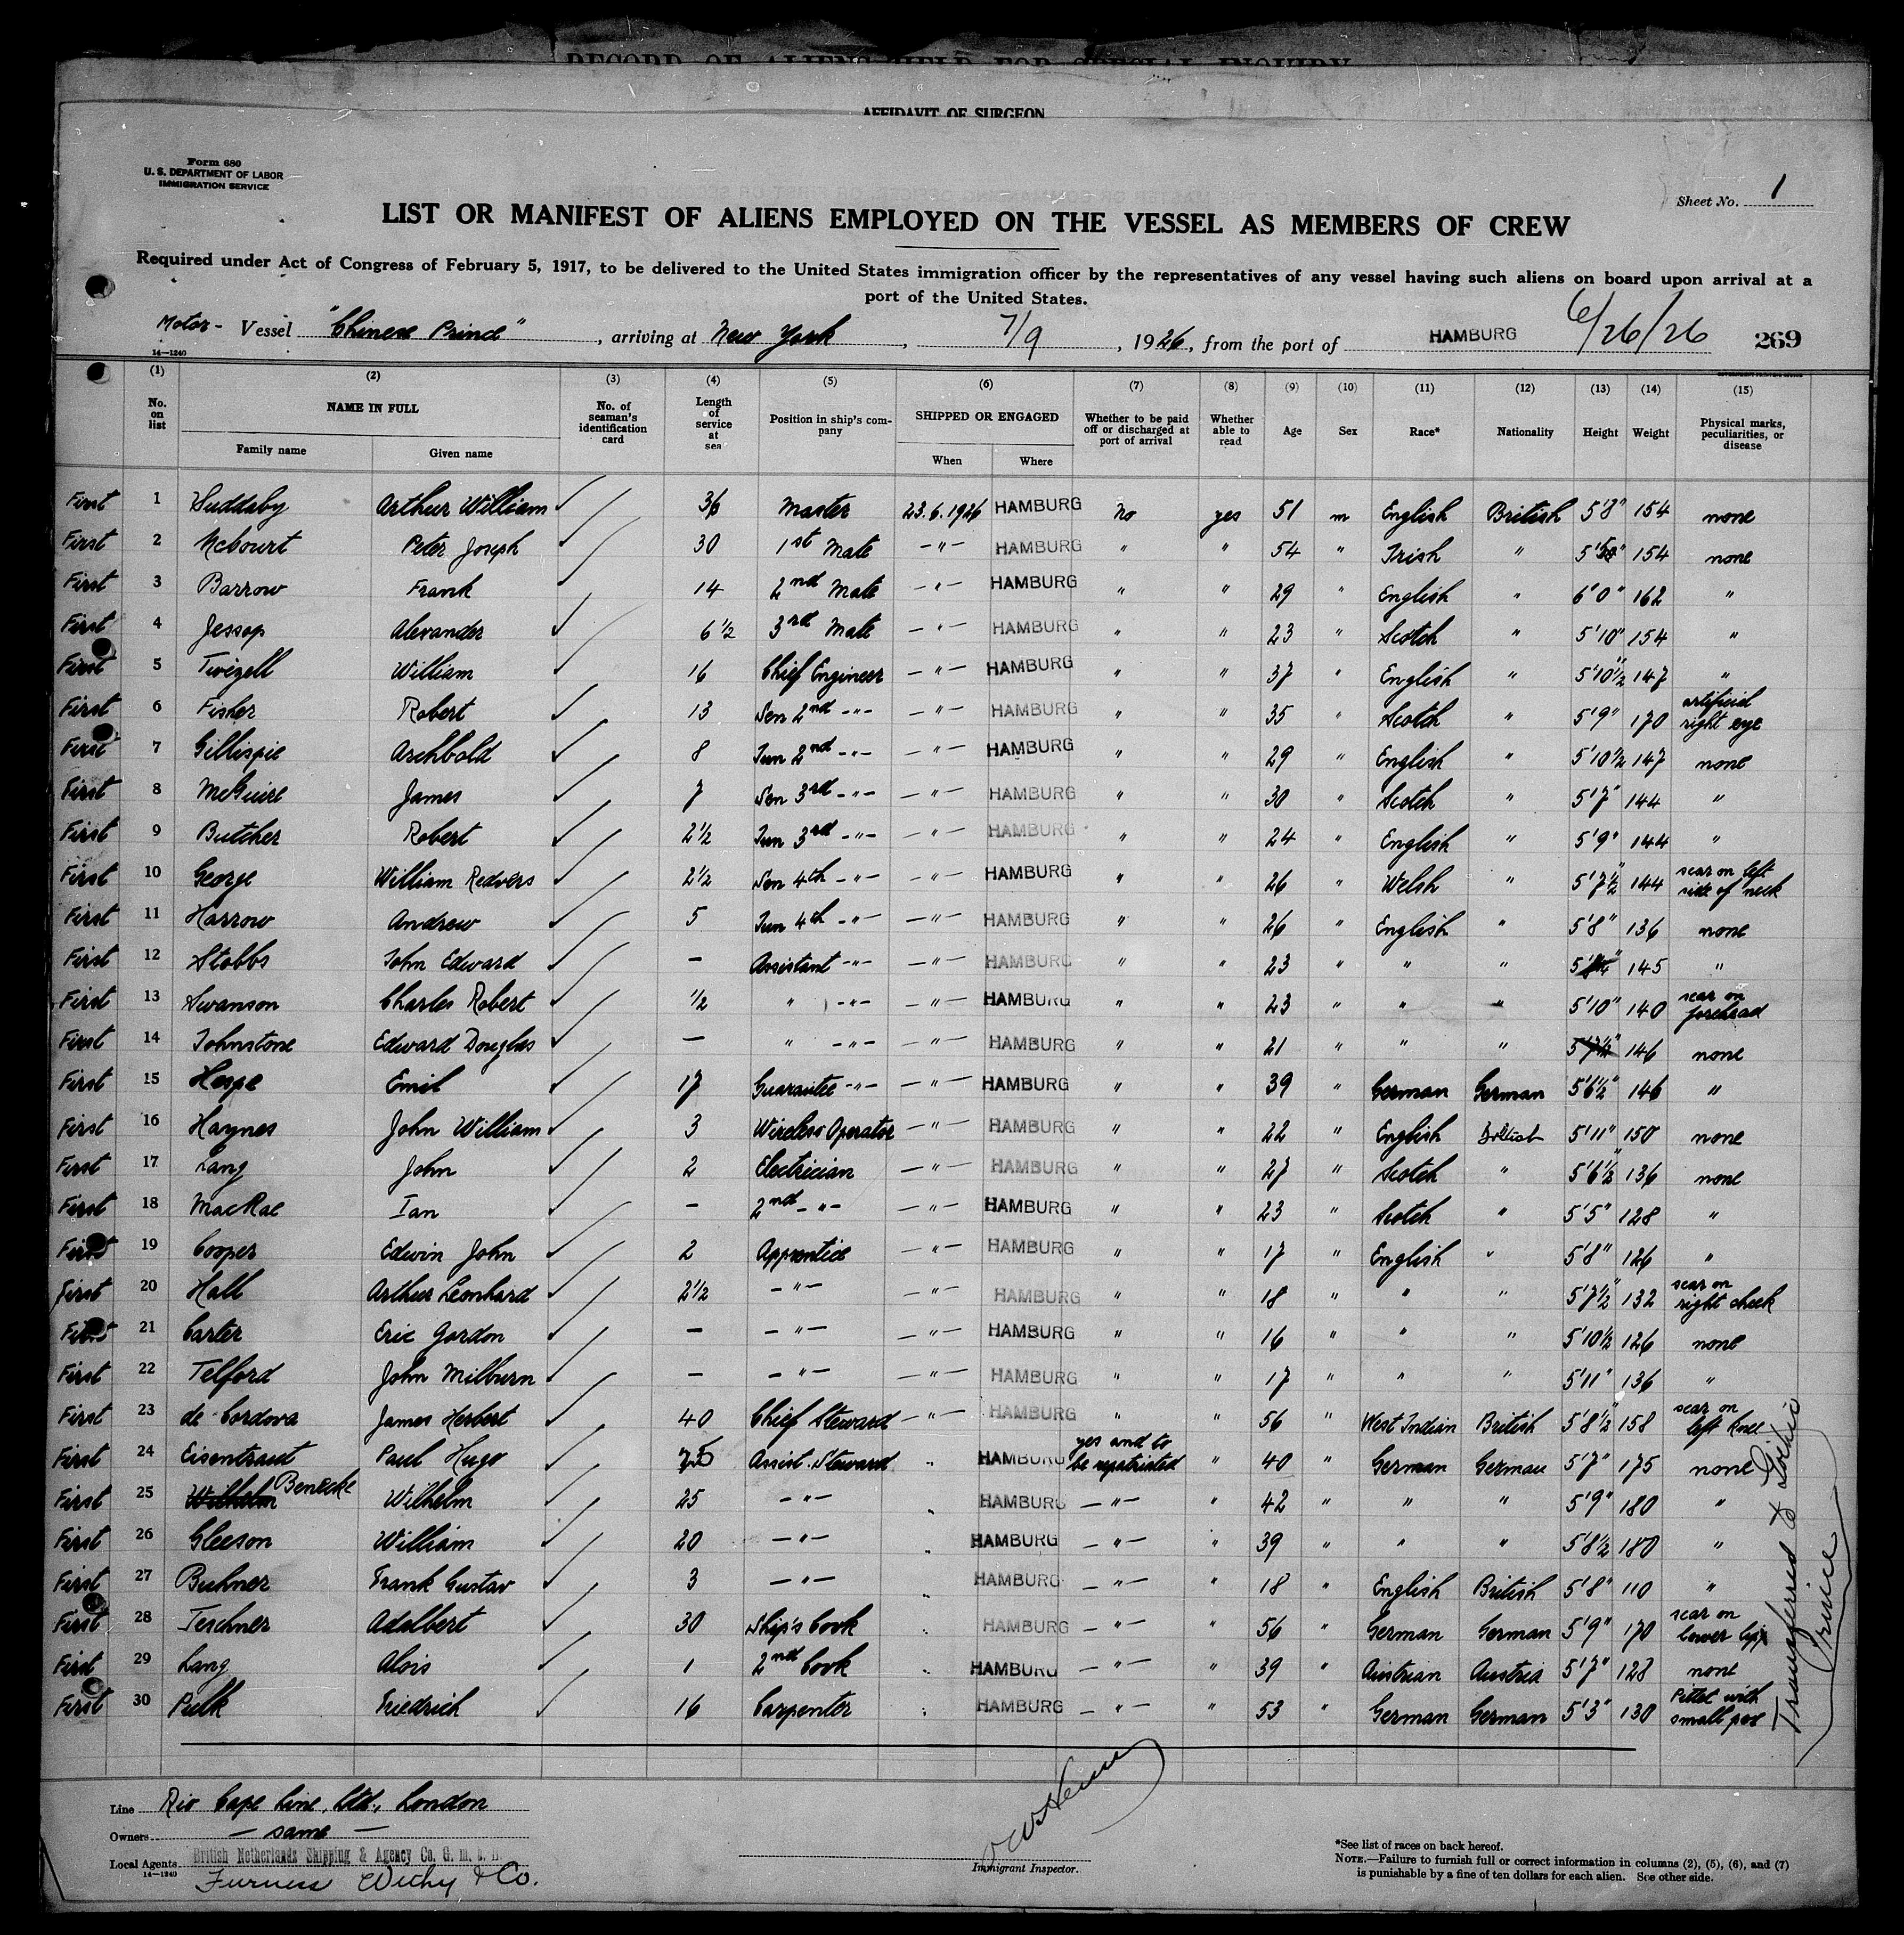 RECORD OF ALIENS HELD FOR SPECIAL INQUIRY
AFFIDAVIT OF SURGEON
Form 680
U. S. DEPARTMENT OF LABOR
IMMIGRATION SERVICE
Sheet No. 1
LIST OR MANIFEST OF ALIENS EMPLOYED ON THE VESSEL AS MEMBERS OF CREW
Required under Act of Congress of February 5, 1917, to be delivered to the United States immigration officer by the representatives of any vessel having such aliens on board upon arrival at a
port of the United States.
Motor- Vessel "Chinese Prince", arriving at New York, 7/9, 1926, from the port of HAMBURG 6/26/26 269
14—1240
(1) (2) (3) (4) (5) (6) (7) (8) (9) (10) (11) (12) (13) (14) (15)
No. on list NAME IN FULL Family name Given name No. of seaman's identification card Length of service at sea Position in ship's company SHIPPED OR ENGAGED When Where Whether to be paid off or discharged at port of arrival Whether able to read Age Sex Race* Nationality Height Weight Physical marks, peculiarities, or disease
First 1 Suddaby Arthur William ✓ 36 Master 23.6.1926 HAMBURG no yes 51 m English British 5'8" 154 none
First 2 McCourt Peter Joseph ✓ 30 1st Mate -"- HAMBURG " " 54 " Irish " 154 none
First 3 Barrow Frank ✓ 14 2nd Mate -"- HAMBURG " " 29 " English " 6'0" 162 "
First 4 Jessop Alexander ✓ 6½ 3rd Mate -"- HAMBURG " " 23 " Scotch " 5'10" 154 "
First 5 Twizell William ✓ 16 Chief Engineer -"- HAMBURG " " 37 " English " 5'10½" 147 "
First 6 Fisher Robert ✓ 13 Sen 2nd -"- -"- HAMBURG " " 35 " Scotch " 5'9" 170 artificial right eye
First 7 Gillispie Archbold ✓ 8 Jun 2nd -"- -"- HAMBURG " " 29 " English " 5'10½ 147 none
First 8 McGuire James ✓ 7 Sen 3rd -"- -"- HAMBURG " " 30 " Scotch " 5'7" 144 "
First 9 Butcher Robert ✓ 2½ Jun 3rd -"- -"- HAMBURG " " 24 " English " 5'9" 144 "
First 10 George William Redvers ✓ 2½ Sen 4th -"- -"- HAMBURG " " 26 " Welsh " 5'7½" 144 scar on left side of neck
First 11 Harrow Andrew ✓ 5 Jun 4th -"- -"- HAMBURG " " 26 " English " 5'8" 136 none
First 12 Stobbs John Edward ✓ - Assistant -"- -"- HAMBURG " " 23 " " " 145 "
First 13 Swanson Charles Robert ✓ ½ " -"- -"- HAMBURG " " 23 " " " 5'10" 140 scar on forehead
First 14 Johnstone Edward Douglas ✓ — " -"- -"- HAMBURG " " 21 " " " 5'7½" 146 none
First 15 Hespe Emil ✓ 17 Guarantee -"- -"- HAMBURG " " 39 " German German 5'6½" 146 "
First 16 Haynes John William ✓ 3 Wireless Operator -"- HAMBURG " " 22 " English British 5'11" 150 none
First 17 Lang John ✓ 2 Electrician -"- HAMBURG " " 27 " Scotch " 5'6½" 136 none
First 18 MacRae Ian ✓ - 2nd -"- -"- HAMBURG " " 23 " Scotch " 5'5" 128 "
First 19 Cooper Edwin John ✓ 2 Apprentice -"- HAMBURG " " 17 " English " 5'8" 126 "
First 20 Hall Arthur Leonhard ✓ 2½ -"- -"- HAMBURG " " 18 " " " 5'7½ 132 scar on right cheek
First 21 Carter Eric Gordon ✓ - -"- -"- HAMBURG " " 16 " " " 5'10½ 126 none
First 22 Telford John Milburn ✓ - -"- -"- HAMBURG " " 17 " " " 5'11" 136 "
First 23 de Cordova James Herbert ✓ 40 Chief Steward -"- HAMBURG " " 56 " West Indian British 5'8½" 158 scar on left knee
First 24 Eisentraut Paul Hugo ✓ Assist. Steward " HAMBURG yes and to be repatriated " 40 " German German 5'7" 175 none
First 25 Wilhelm Benecke Wilhelm ✓ 25 -"- " HAMBURG -"- " 42 " " " 5'9" 180 "
First 26 Gleeson William ✓ 20 -"- " HAMBURG -"- " 39 " " " 5'8½ 180 "
First 27 Buhner Frank Gustav ✓ 3 -"- " HAMBURG -"- " 18 " English British 5'8" 110 "
First 28 Teschner Adalbert ✓ 30 Ship's Cook " HAMBURG -"- " 56 " German German 5'9" 170 scar on lower lip
First 29 Lang Alois ✓ 1 2nd Cook " HAMBURG -"- " 39 " Austrian Austria 5'7" 128 none
First 30 Pulk Friedrich ✓ 16 Carpenter " HAMBURG -"- " 53 " German German 5'3" 130 Pittet with small pox
Transferred to Gothic Prince
Line Rio Cape Line, Ltd., London
Owners — same —
Local Agents British Netherlands Shipping & Agency Co. G. m. b. H.
14—1240
Furness Withy & Co.
Immigrant Inspector.
*See list of races on back hereof.
NOTE.—Failure to furnish full or correct information in columns (2), (5), (6), and (7)
is punishable by a fine of ten dollars for each alien. See other side.